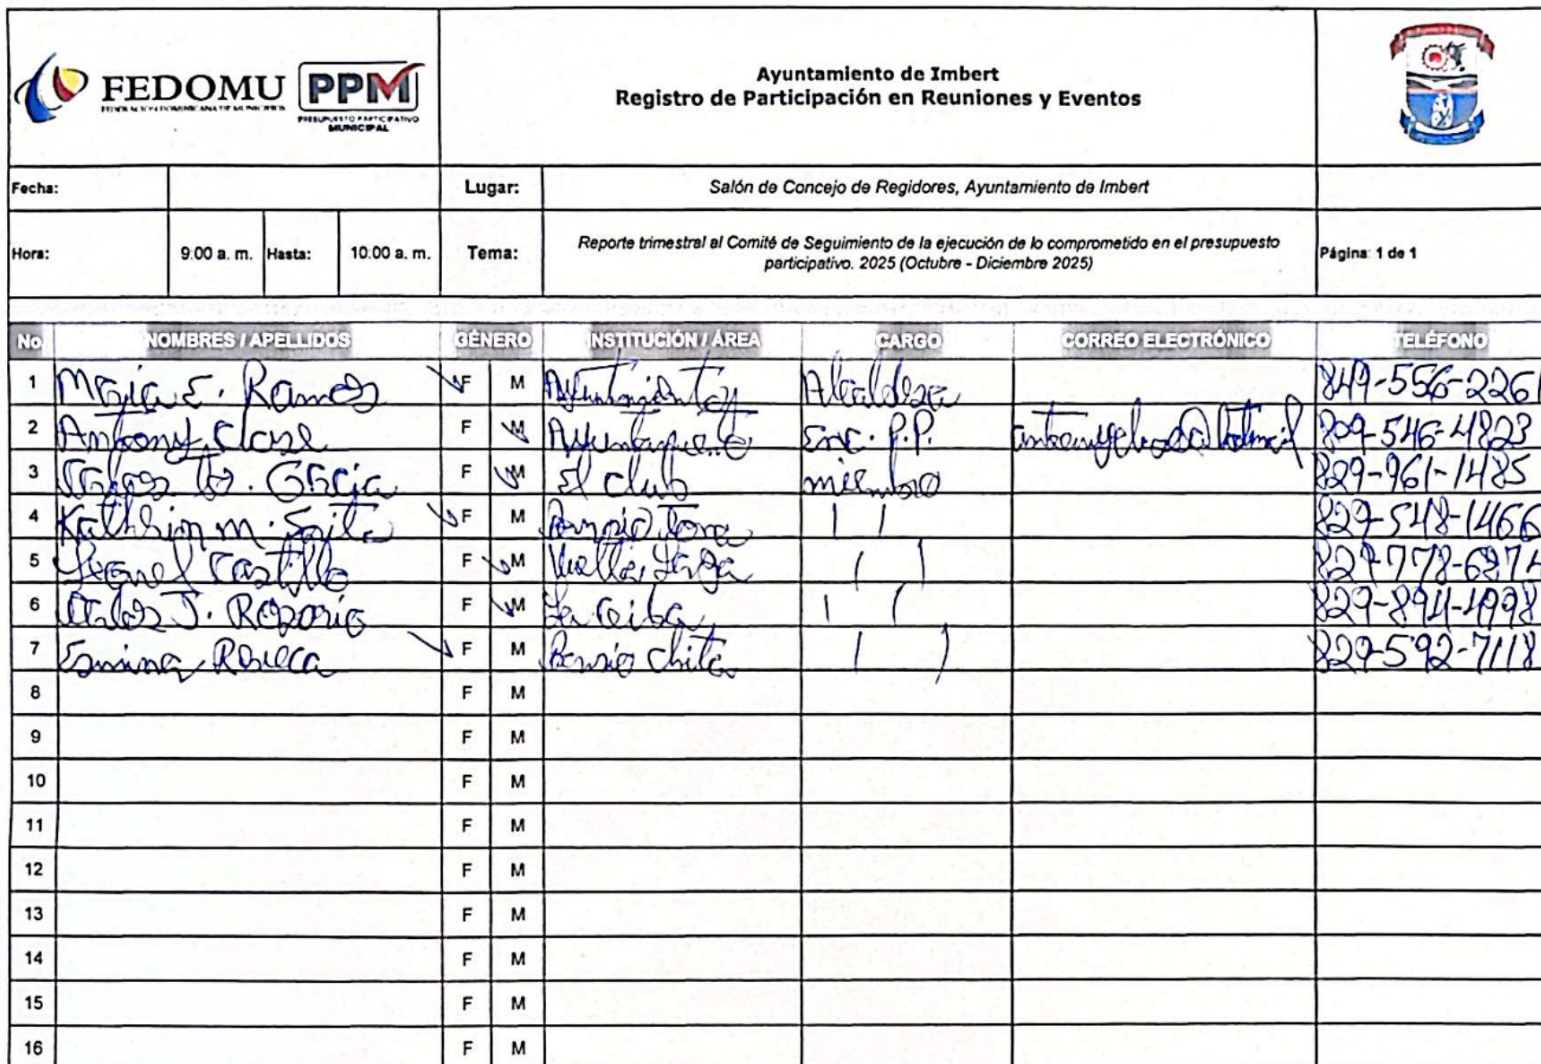 FEDOMU
FEDERACION DOMINICANA DE MUNICIPIOS
PPM
PRESUPUESTO PARTICIPATIVO
MUNICIPAL
Ayuntamiento de Imbert
Registro de Participación en Reuniones y Eventos
Fecha: Lugar: Salón de Concejo de Regidores, Ayuntamiento de Imbert
Hora: 9:00 a. m. Hasta: 10:00 a. m. Tema: Reporte trimestral al Comité de Seguimiento de la ejecución de lo comprometido en el presupuesto participativo. 2025 (Octubre - Diciembre 2025) Página: 1 de 1
No. NOMBRES / APELLIDOS GÉNERO INSTITUCIÓN / ÁREA CARGO CORREO ELECTRÓNICO TELÉFONO
1 María E. Ramos F M Ayuntamiento Alcaldesa 849-556-2261
2 Anthony Clase F M Ayuntamiento Enc. P.P. 809-546-4823
3 García F M El club miembro 829-961-1485
4 M. F M 829-548-1466
5 Leonel Castillo F M 829-778-6274
6 Carlos J. Rosario F M La Ceiba 829-894-4998
7 F M Barrio Chita 829-592-7118
8 F M
9 F M
10 F M
11 F M
12 F M
13 F M
14 F M
15 F M
16 F M